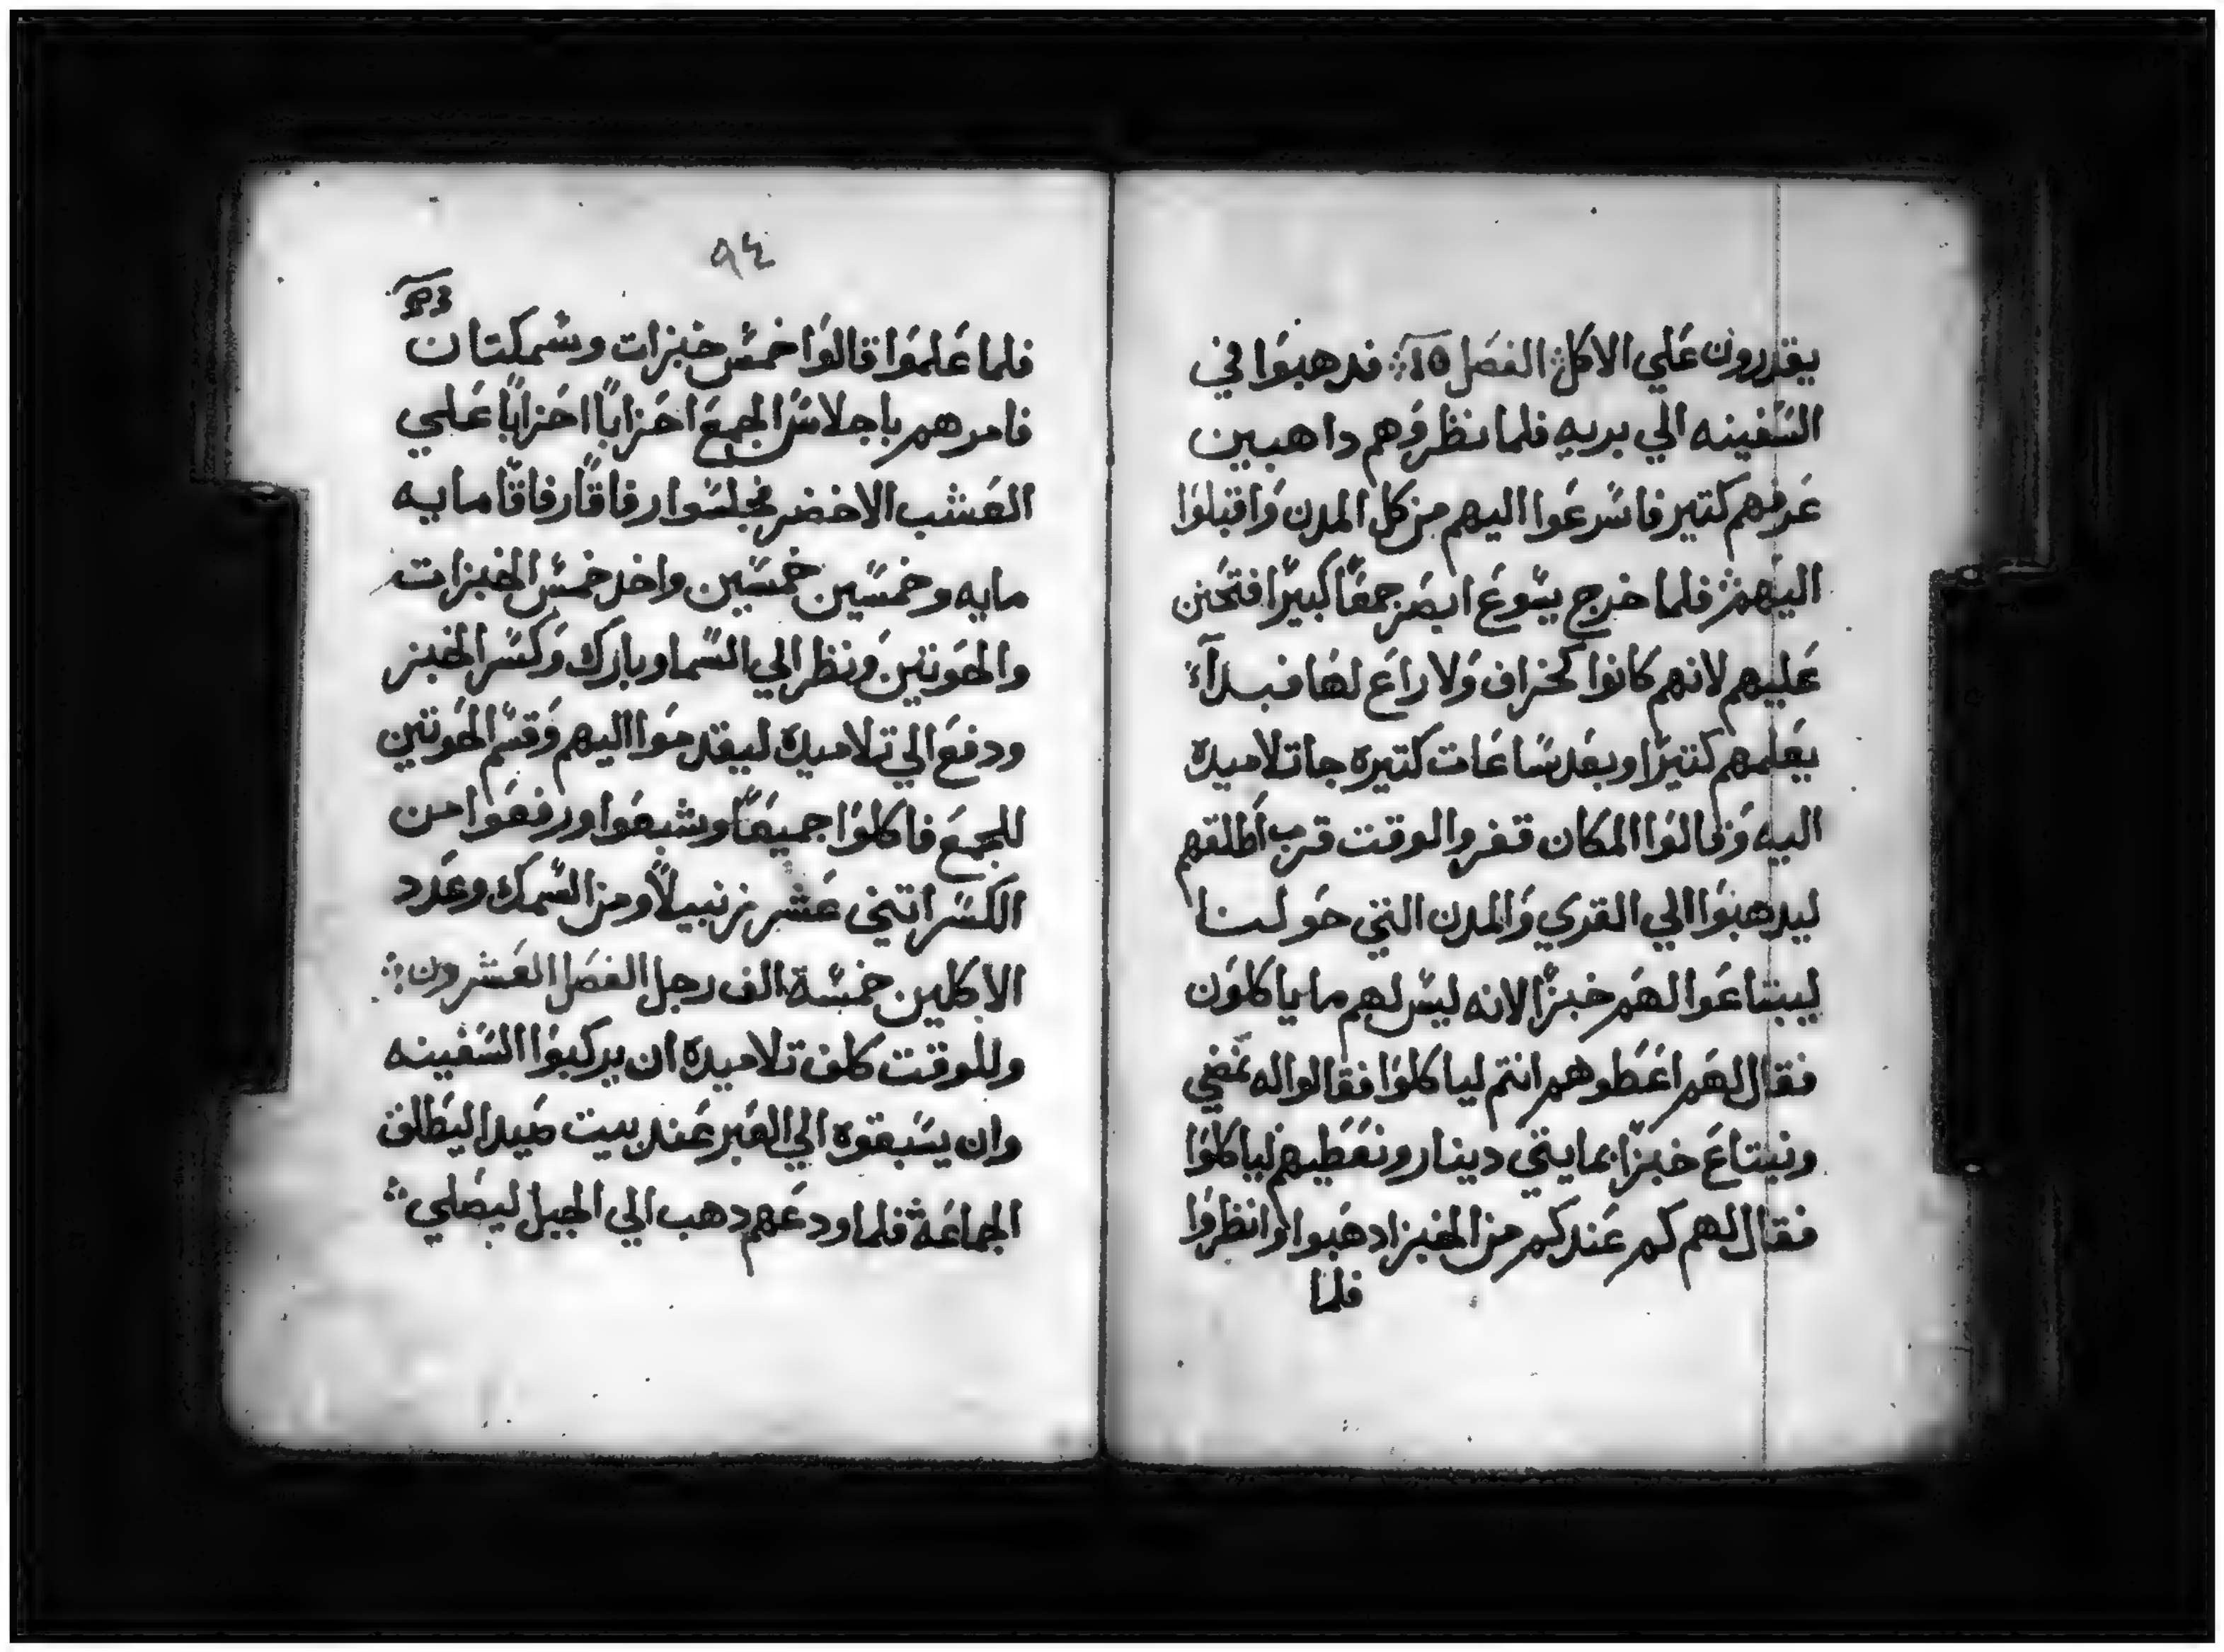 يقدرون علي الاكل الفصل فدهبوا في
السفينه الي بريه فلما نظروهم داهبين
عرفهم كتير فاسرعوا اليهم من كل المدن واقبلوا
اليهم فلما خرج يسوع ابصر جمعًا كبيرًا فتحنن
عليهم لانهم كانوا كخراف ولا راع لها فبدآء
يعلمهم كتيرًا وبعد ساعات كتيره جا تلاميده
اليه وقالوا المكان قفر والوقت قرب اطلقهم
ليدهبوا الي القري والمدن التي حولنا
ليبتاعوا لهم خبزًا لانه ليس لهم ما ياكلون
فقال لهم اعطوهم انتم لياكلوا فقالوا له نمضي
ونبتاع خبزًا بمايتي دينار ونعطيهم لياكلوا
فقال لهم كم عندكم من الخبز ادهبوا وانظروا
فلما
٩٤
فلما علموا قالوا خمس خبزات وسمكتان
فامرهم باجلاس الجمع احزابًا احزابًا علي
العشب الاخضر فجلسوا رفاقًا رفاقًا مايه
مايه وخمسين خمسين واخد خمس الخبزات
والحوتين ونظر الي السما وبارك وكسر الخبز
ودفع الي تلاميده ليقدموا اليهم وقسم الحوتين
للجمع فاكلوا جميعًا وشبعوا ورفعوا من
الكسر اتني عشر زنبيلًا ومن السمك وعدد
الاكلين خمسة الف رجل الفصل العشرون
وللوقت كلف تلاميده ان يركبوا السفينه
وان يسبقوه الي العبر عند بيت صيدا ليطلق
الجماعة فلما ودعهم دهب الي الجبل ليصلي